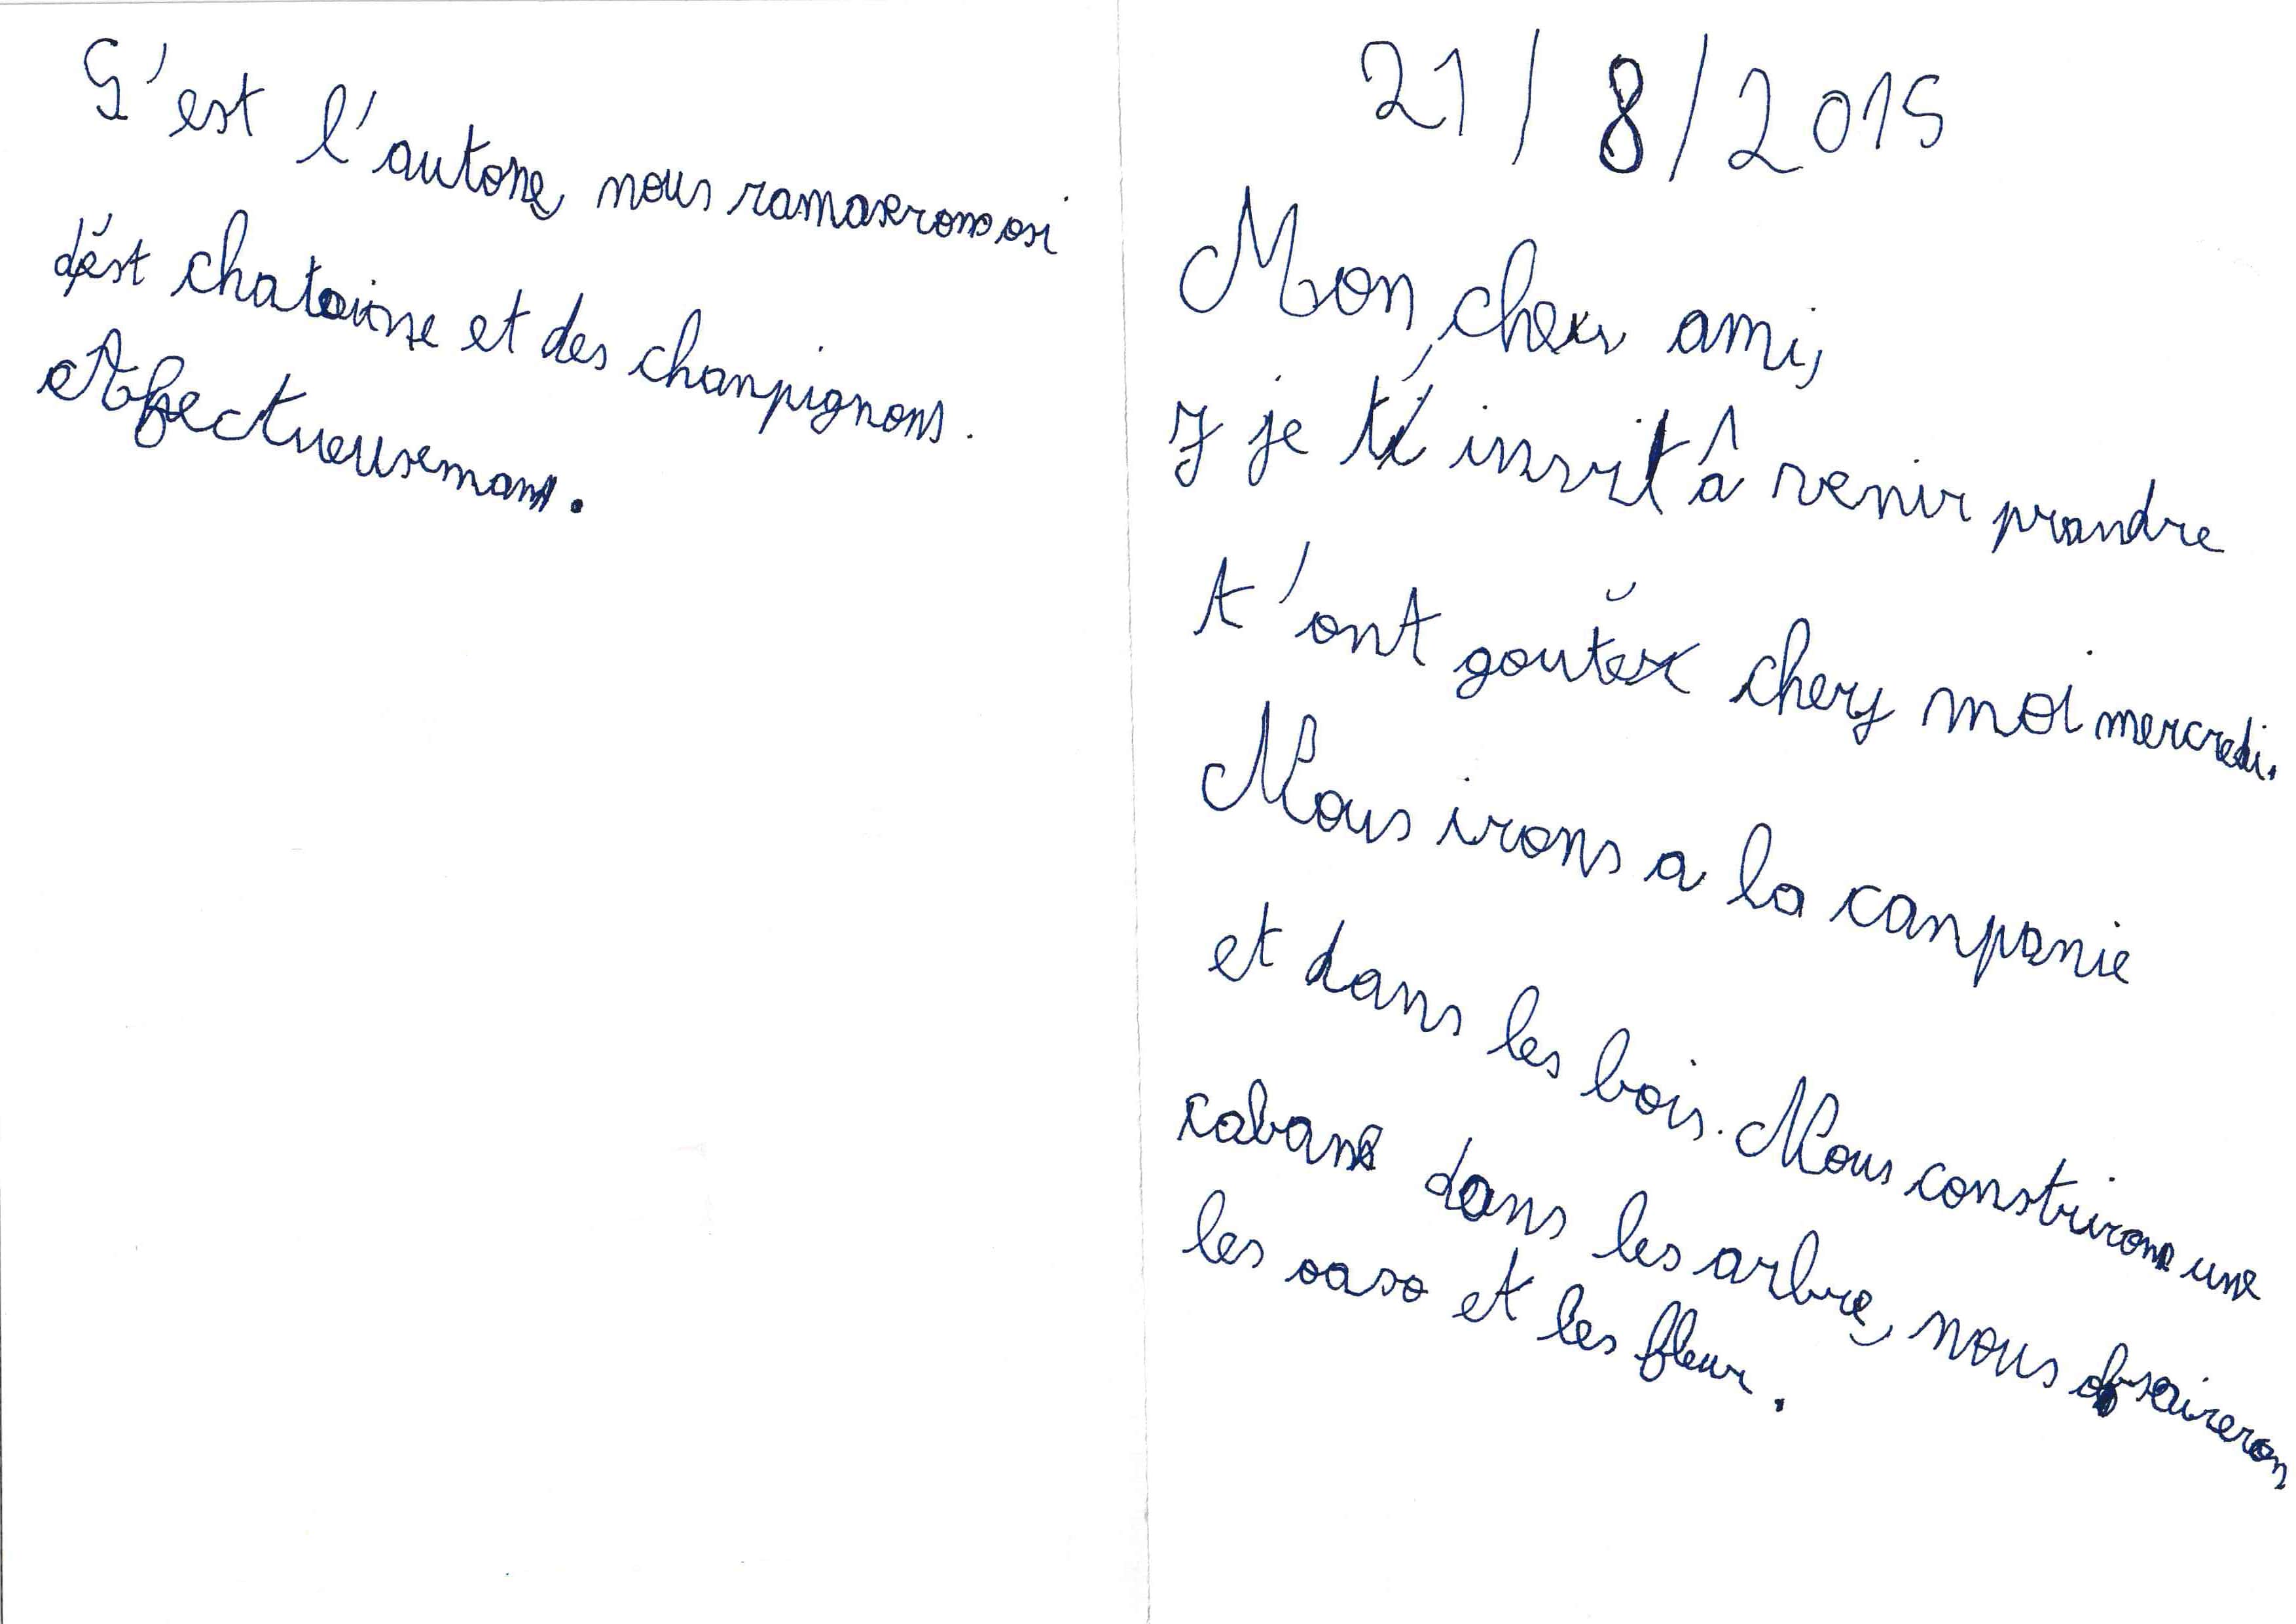 21/8/2015
Mon cher ami,
je t'invit â venir prandre
t'ont gouter chez moi mercredi.
Nous irons a la canpanie
et dans les bois. Nous construirons une
cabane dans les arbre, nous obsaireron
les oaso et les fleur.
S'est l'autone, nous ramaserons osi
d'est chatainse et des chanpignons.
Afectueusemant.